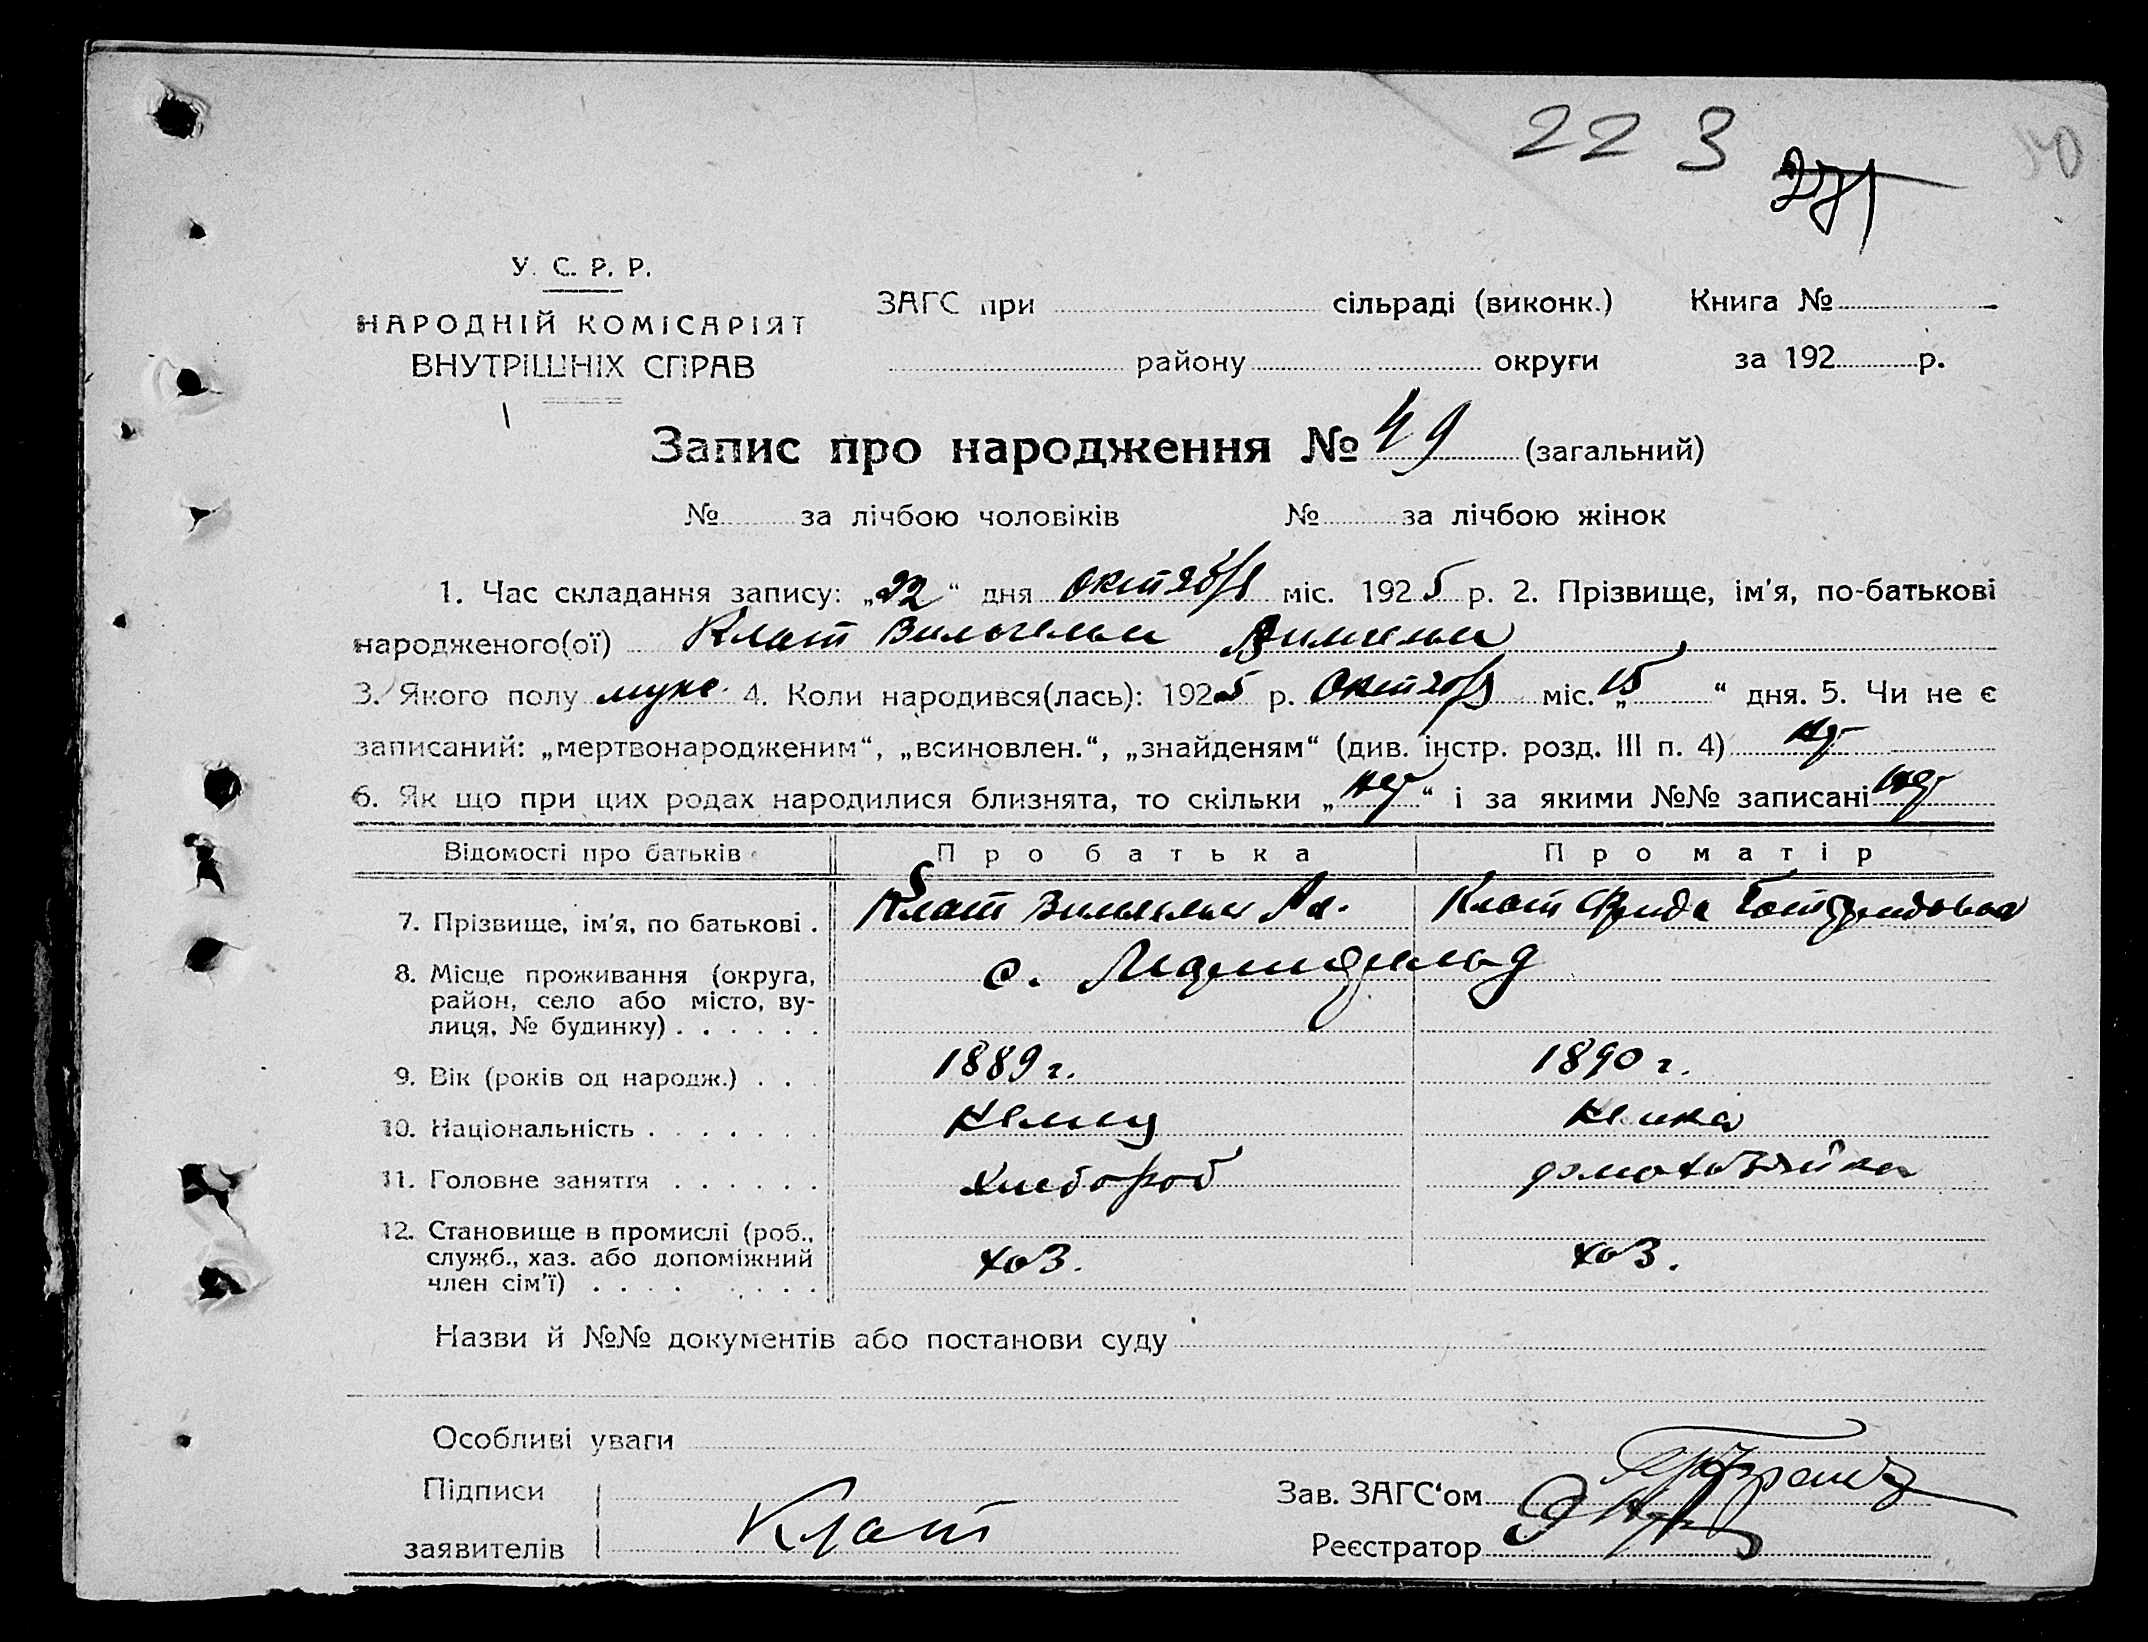 22 3
271
У. С. Р. Р.
НАРОДНІЙ КОМІСАРІЯТ
ВНУТРІШНІХ СПРАВ
ЗАГС при сільраді (виконк.) Книга №
району округи за 192 р.
Запис про народження № 49 (загальний)
№ за лічбою чоловіків № за лічбою жінок
1. Час складання запису: „22“ дня октября міс. 1925 р. 2. Прізвище, ім'я, по-батькові
народженого(ої) Клат Вильгельм Вильгельм
3. Якого полу муж. 4. Коли народився(лась): 1925 р. Октября міс. „15“ дня. 5. Чи не є
записаний: „мертвонародженим“, „всиновлен.“, „знайденям“ (див. інстр. розд. III п. 4) нет
6. Як що при цих родах народилися близнята, то скільки „нет“ і за якими №№ записані нет
Відомості про батьків Про батька Про матір
7. Прізвище, ім'я, по батькові . Клат Вильгельм Ал. Клат Фрида Готфридовна
8. Місце проживання (округа,
район, село або місто, ву-
лиця, № будинку) . . . . . . с.
9. Вік (років од народж.) . . . 1889 г. 1890 г.
10. Національність . . . . . . . немец немка
11. Головне заняття . . . . . . хлебороб домохозяйка
12. Становище в промислі (роб.,
служб., хаз. або допоміжний
член сім'ї) . . . . . . . . хоз. хоз.
Назви й №№ документів або постанови суду
Особливі уваги
Підписи
заявителів Клат
Зав. ЗАГС‘ом
Реєстратор